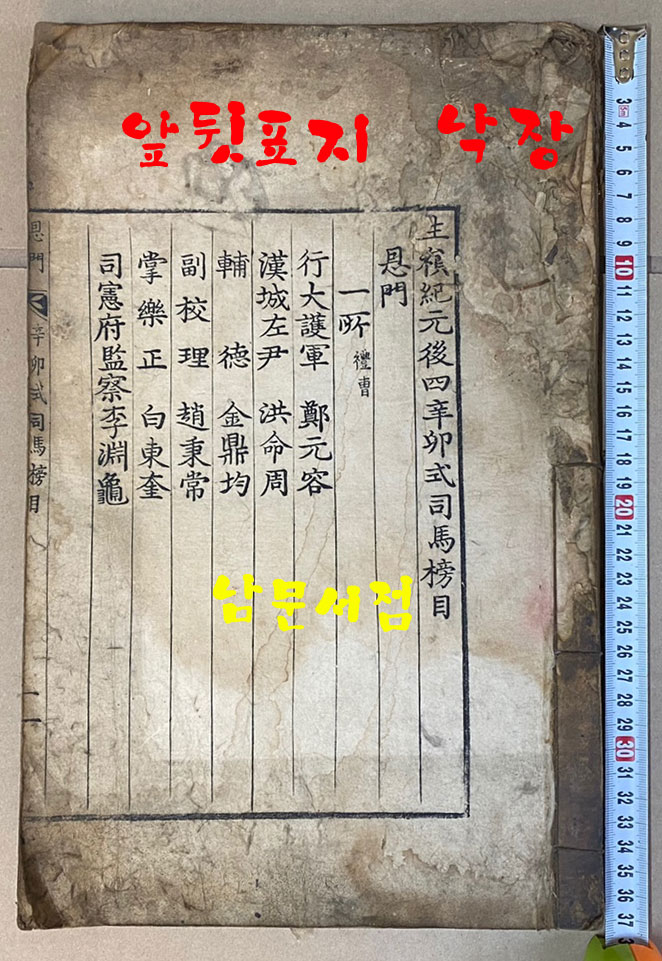 앞뒷표지 낙장
崇禎紀元後四辛卯式司馬榜目
恩門
一所 禮曹
行大護軍 鄭元容
漢城左尹 洪命周
輔德 金鼎均
副校理 趙秉常
掌樂正 白東奎
司憲府監察李淵龜
恩門 辛卯式司馬榜目
남문서점
3 4 5 6 7 8 9 10 11 12 13 14 15 16 17 18 19 20 21 22 23 24 25 26 27 28 29 30 31 32 33 34 35 36 37